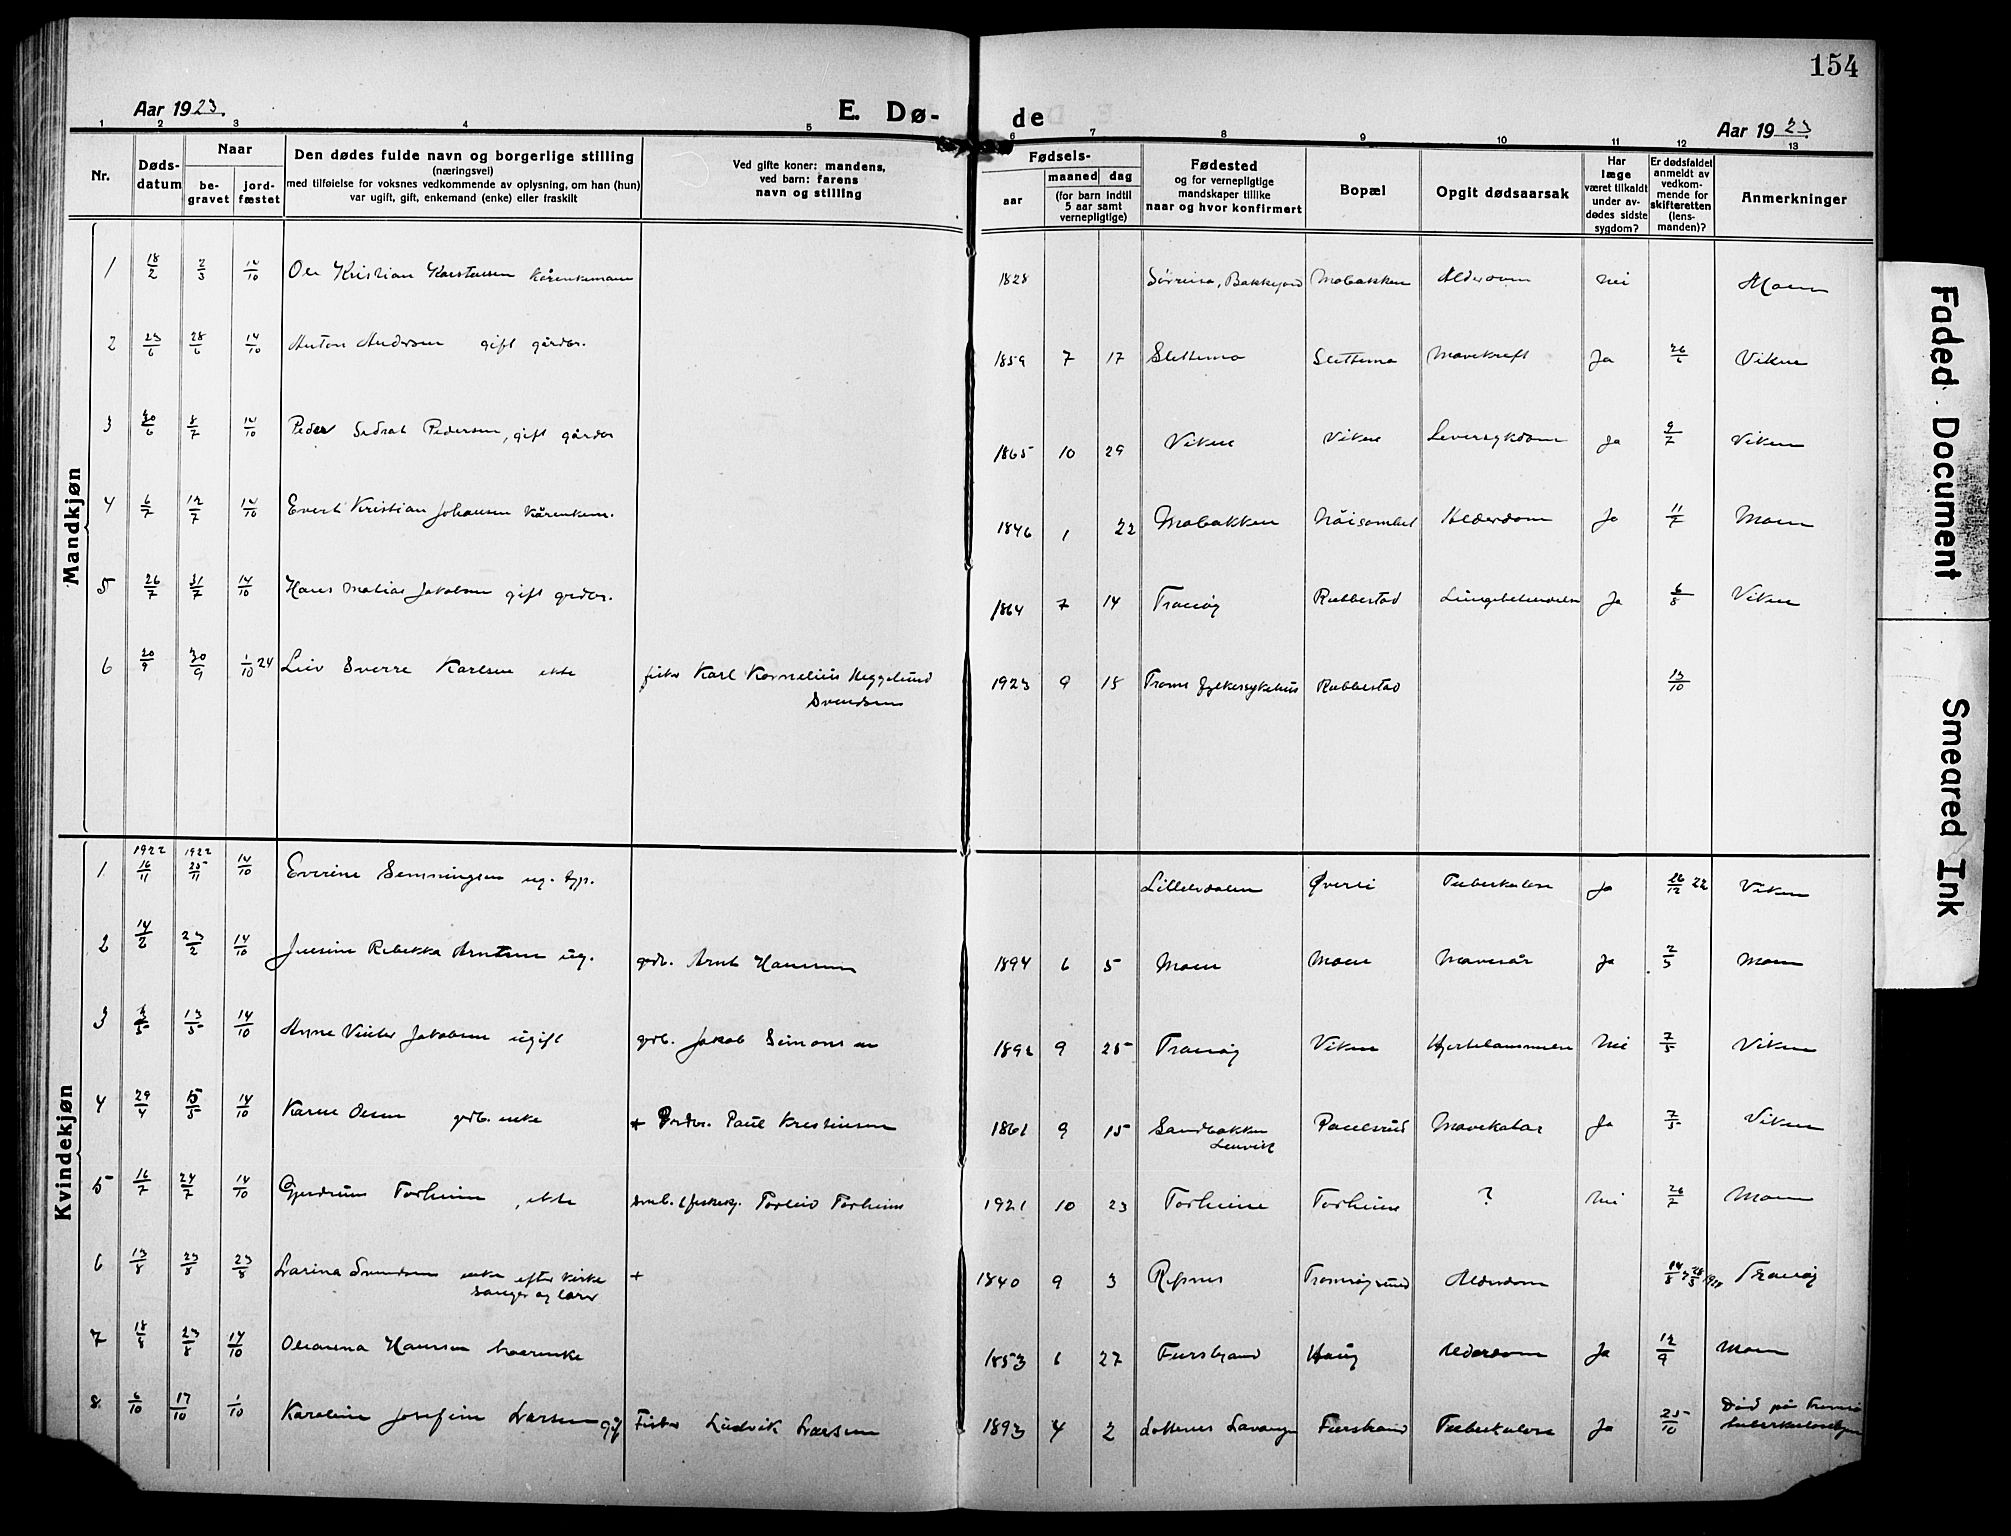 154
Aar 1923.
E. Dø-
de
Aar 1923.
1 2 3 4 5 6 7 8 9 10 11 12 13
Nr.
Døds-
datum
Naar
be-
gravet
jord-
fæstet
Den dødes fulde navn og borgerlige stilling
(næringsvei)
med tilføielse for voksnes vedkommende av oplysning, om han (hun)
var ugift, gift, enkemand (enke) eller fraskilt
Ved gifte koner: mandens,
ved barn: farens
navn og stilling
Fødsels-
aar
maaned dag
(for barn indtil
5 aar samt
vernepligtige)
Fødested
og for vernepligtige
mandskaper tillike
naar og hvor konfirmert
Bopæl
Opgit dødsaarsak
Har
læge
været tilkaldt
under av-
dødes sidste
sygdom?
Er dødsfaldet
anmeldt av
vedkom-
mende for
skifteretten
(lens-
manden)?
Anmerkninger
Mandkjøn
1 18/2 2/3 14/10 Ole Kristian Karstensen kårenkemann 1828 Sørreisa, Bakkejord Mobakken Alderdom Nei Moen
2 23/6 28/6 14/10 Anton Andersen gift gårdbr. 1859 7 17 Slettemo Slettemo Mavekreft Ja 26/6 Viken
3 30/6 8/7 14/10 Peder Pedersen, gift gårdbr 1865 10 29 Viken Viken Leversykdom Ja 9/7 Viken
4 6/7 12/7 14/10 Evert Kristian Johansen kårenkem. 1846 1 22 Mobakken Alderdom Ja 11/7 Moen
5 26/7 31/7 14/10 Hans Matias Jakobsen gift grdbr. 1864 7 14 Tranøy Rubbestad Lungebetendelse Ja 6/8 Viken
6 20/9 30/9 1/10 24 Leiv Sverre Karlsen ekte fisker Karl Kornelius Heggelund
Svendsen 1923 9 18 Troms fylkessykehus Rubbestad 13/10
Kvindekjøn
1 1922 16/11 1922 25/11 14/10 Everine Semmingsen ug. Lillelvdalen Øverli Tuberkulose Ja 26/12 22 Viken
2 14/2 23/2 14/10 Jensine Rebekka Arntsen ug. grdb. Arnt Hansen 1894 6 5 Moen Moen Mavesår Ja 2/5 Moen
3 13/5 14/10 Anne Vinter Jakobsen ugift grdb. Jakob Simonsen 1892 9 25 Tranøy Viken Hjertelammelse Nei 7/5 Viken
4 29/4 14/10 Karen Olsen grdb. enke + Grdbr. Paul Kristensen 1861 9 15 Sandbakken
Lenvik Paulsrud Mavekatar Ja 7/5 Viken
5 16/7 24/7 14/10 Gjerdrum Torheim, ekte smb. & fiskerg. Torleiv Torheim 1921 10 23 Torheim Torheim ? Nei 26/7 Moen
6 13/8 23/8 23/8 Larina Svendsen enke efter kirke
sanger og lærer + 1840 9 3 Refsnes Tranøysund Alderdom 14/8 Tranøy
7 18/8 23/8 14/10 Oleanna Hansen kårenke 1853 6 27 Furstrand Haug Alderdom Ja 12/9 Moen
8 6/10 17/10 1/10 Karoline Josefine Larsen gif Fisker Ludvik Larsen 1893 4 2 Lavangen Furstrand Tuberkulose Ja 25/10 Død på Tromsø
tuberkulosehjem
Faded Document
Smeared Ink